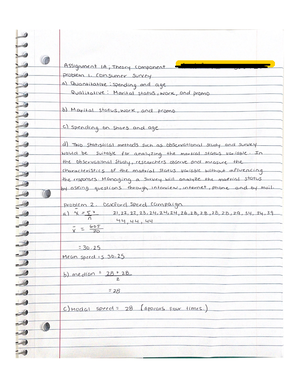 Assignment 1A, Theory Component
Problem 1. Consumer Survey
a) Quantitative: Spending and age
Qualitative: Marital status, work, and promo
b) Marital status, work, and promo
c) Spending on shoes and age
d) Two statistical methods such as observational study and survey
would be suitable for analyzing the marital status variable. In
the observational study, researchers observe and measure the
characteristics of the marital status variable without influencing
the responses. Managing a survey will analyze the marital status
by asking questions through interview, internet, phone and by mail.
Problem 2. Oxelord Speed Campaign
a) x̄ = Σx / n
x̄ =
= 30.25
Mean speed is 30.25
b) median = 28 + 28 / 2
= 28
c) modal speed = 28 (appears four times.)